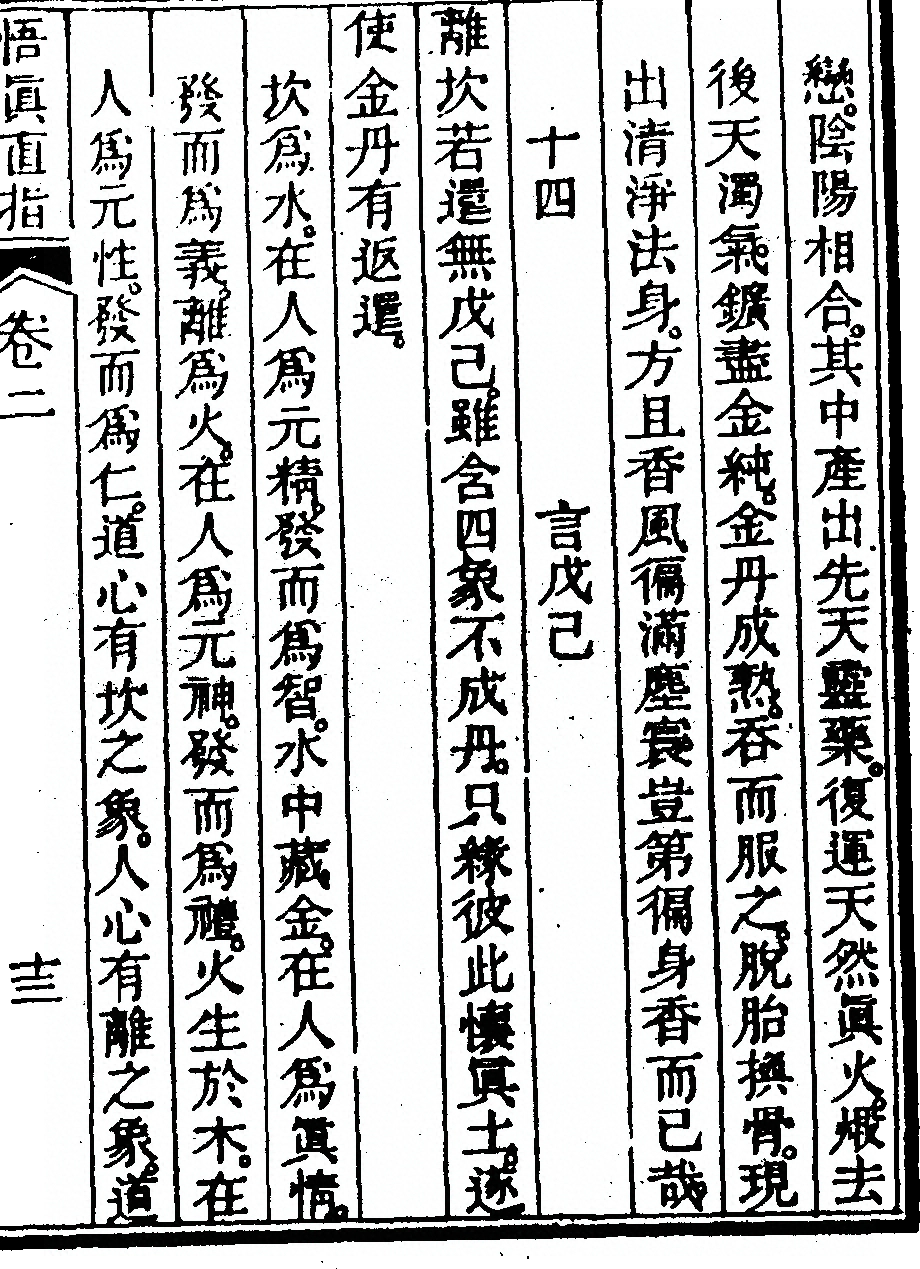 戀。陰陽相合。其中產出先天靈藥。復運天然眞火。煅去
後天濁氣。鑛盡金純。金丹成熟。吞而服之。脫胎換骨。現
出清淨法身。方且香風徧滿塵寰豈第徧身香而已哉
十四　言戊己
離坎若還無戊己。雖含四象不成丹。只緣彼此懷眞土。遂
使金丹有返還。
坎為水。在人為元精。發而為智。水中藏金。在人為眞情。
發而為義。離為火。在人為元神。發而為禮。火生於木。在
人為元性。發而為仁。道心有坎之象。人心有離之象。道
悟眞直指　卷二　十三